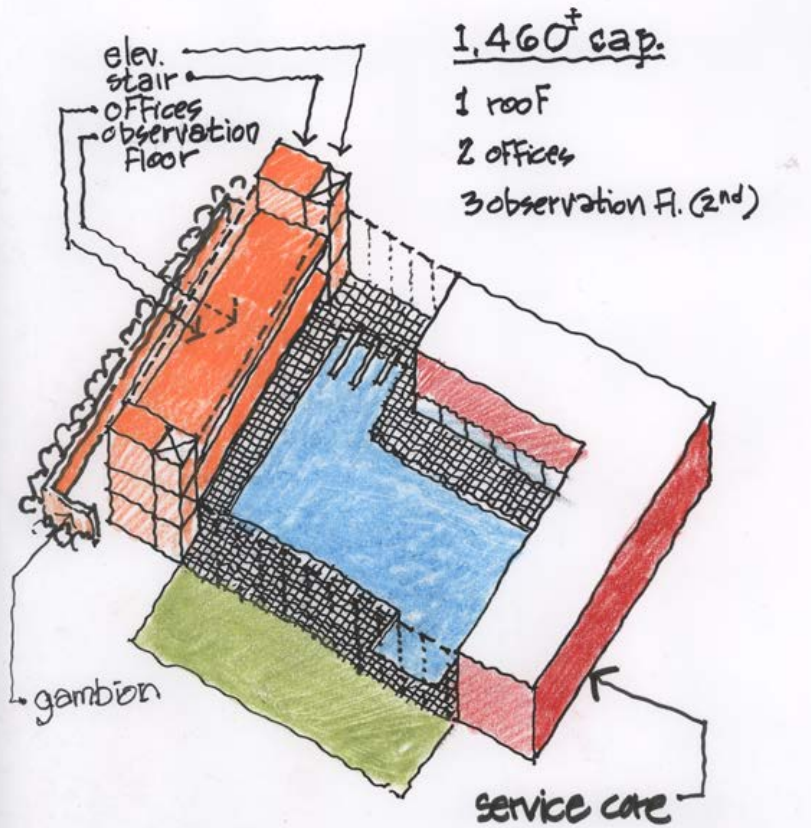 elev.
stair
offices
observation
floor
1,460± cap.
1 roof
2 offices
3 observation Fl. (2nd)
gambion
service core